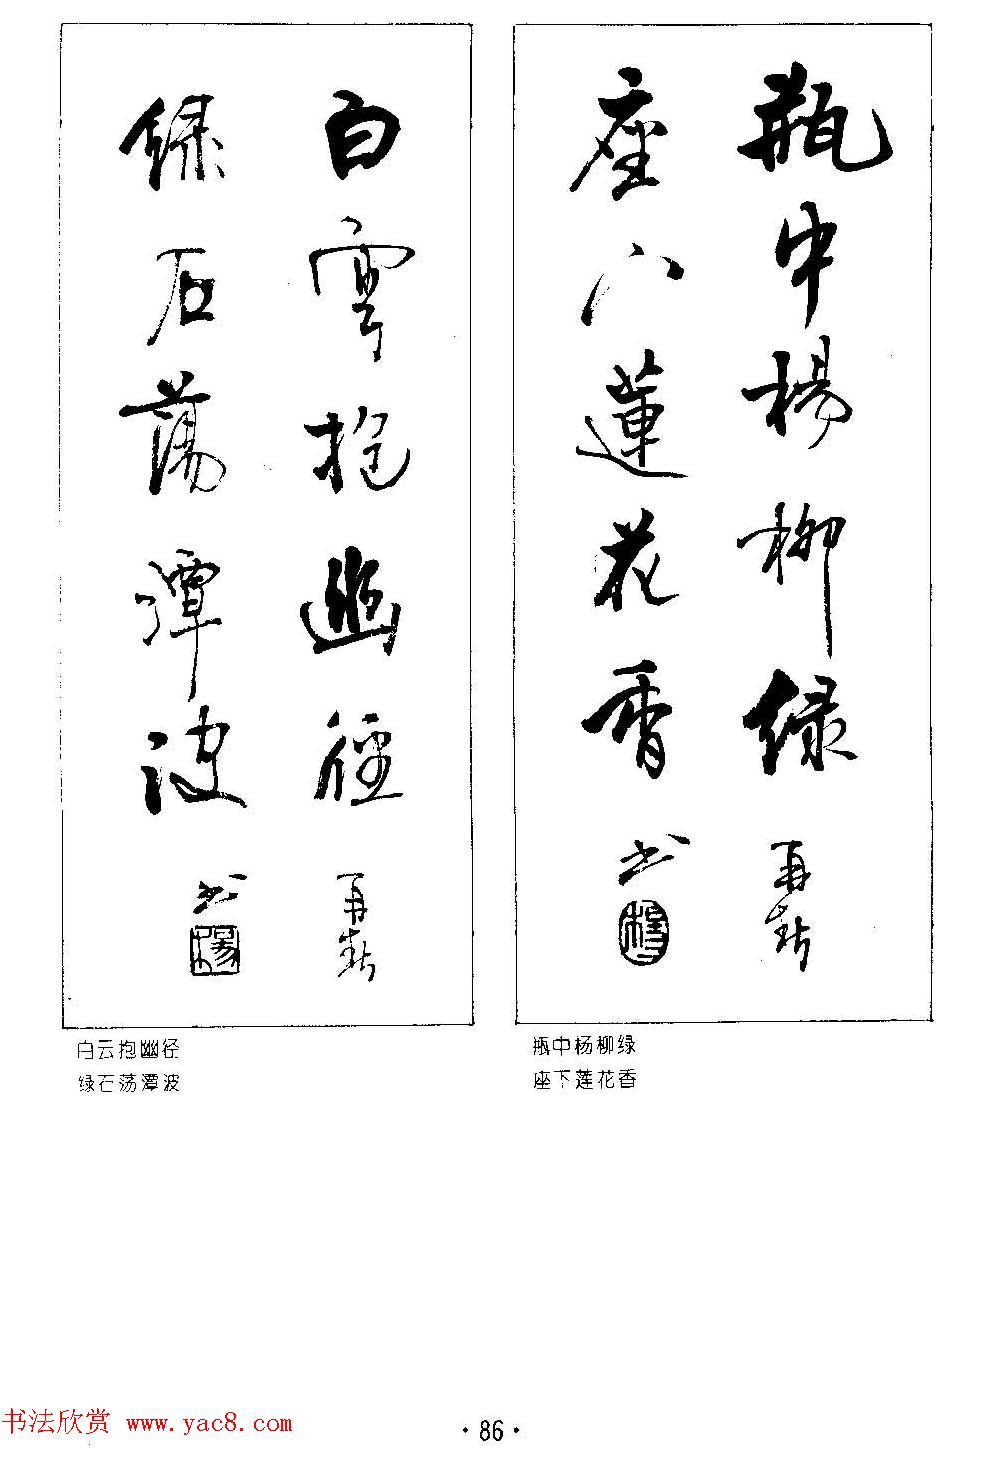 瓶中楊柳綠
座下蓮花香
再春
书
白雲抱幽徑
綠石蕩潭波
再春
书
瓶中杨柳绿
座下莲花香
白云抱幽径
绿石荡潭波
·86·
书法欣赏 www.yac8.com